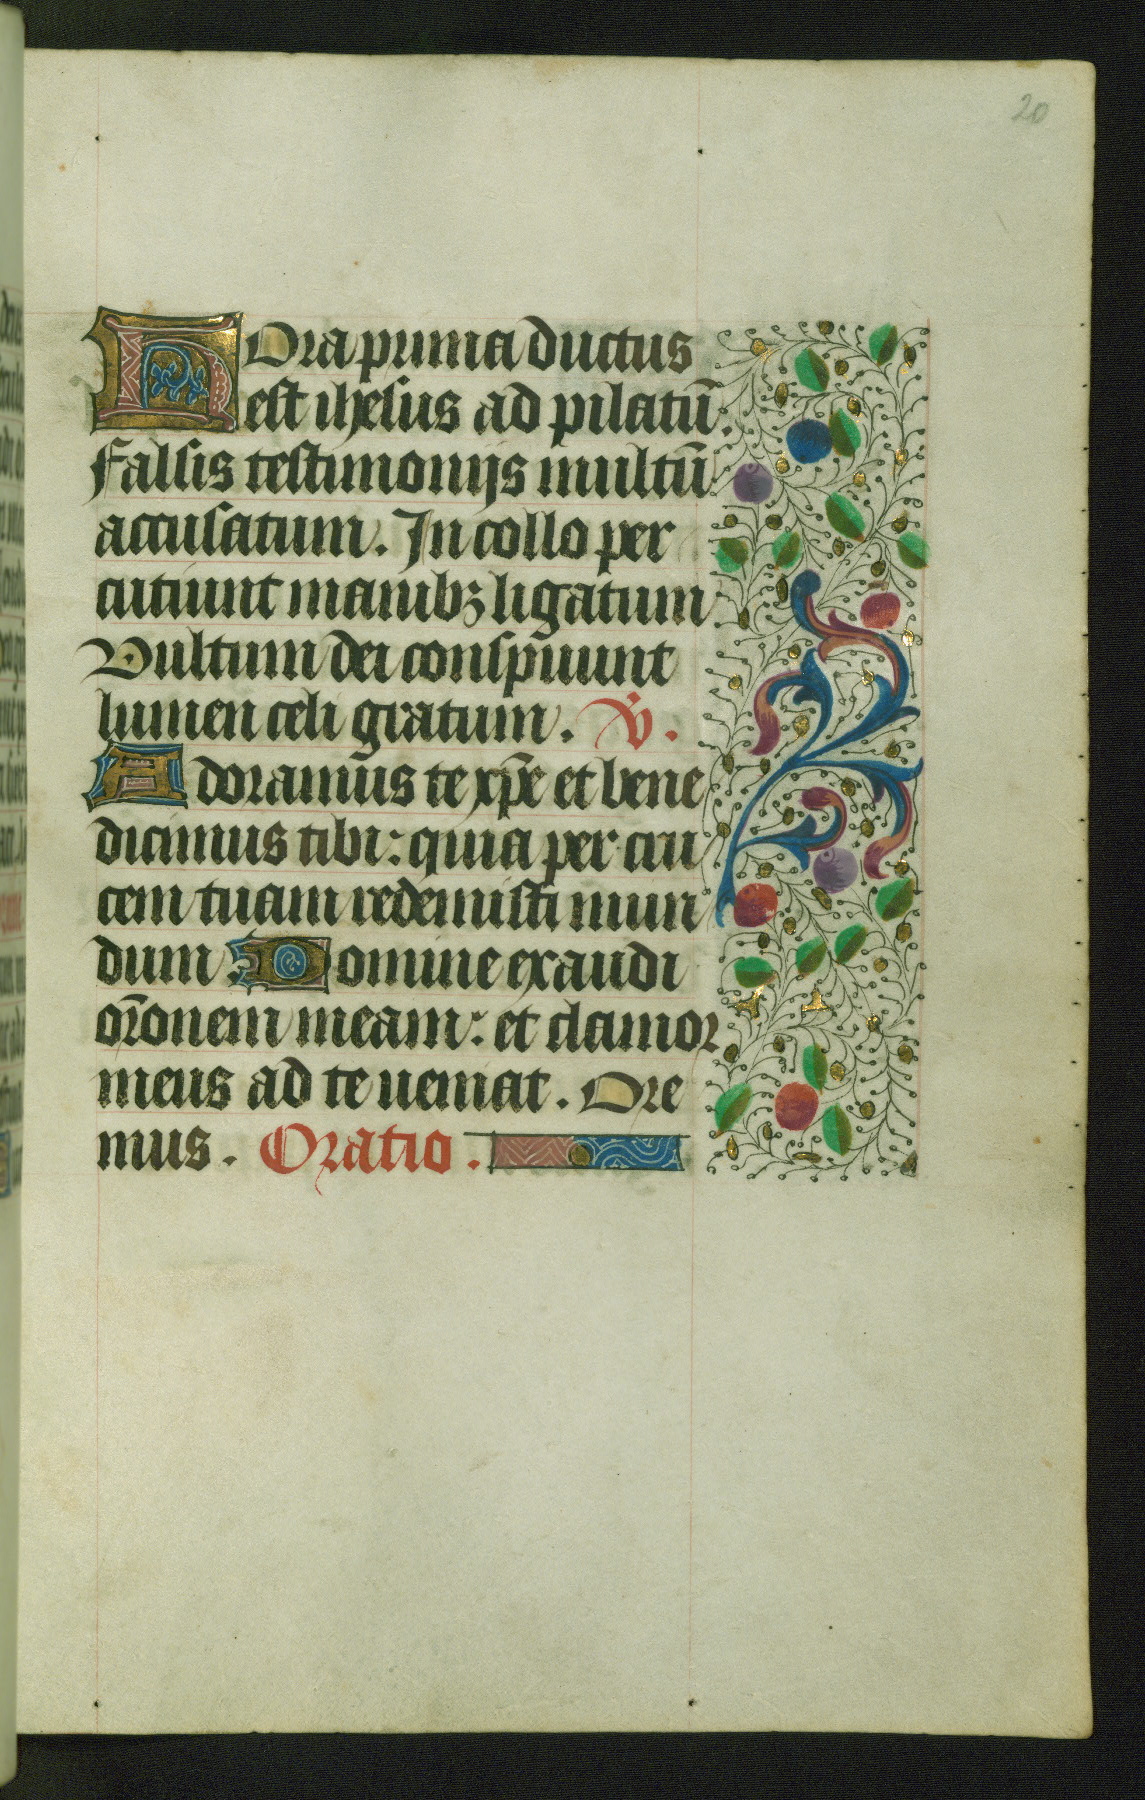 20
Hora prima ductus
est ihesus ad pilatū.
Falsis testimonijs multū
accusatum. In collo per
cutiunt manibꝫ ligatum
Vultum dei conspuunt
lumen celi gratum. V̄.
Adoramus te xp̄e et bene
dicimus tibi: quia per cru
cem tuam redemisti mun
dum. Domine exaudi
orōnem meam: et clamor
meus ad te ueniat. Ore
mus. Oratio.